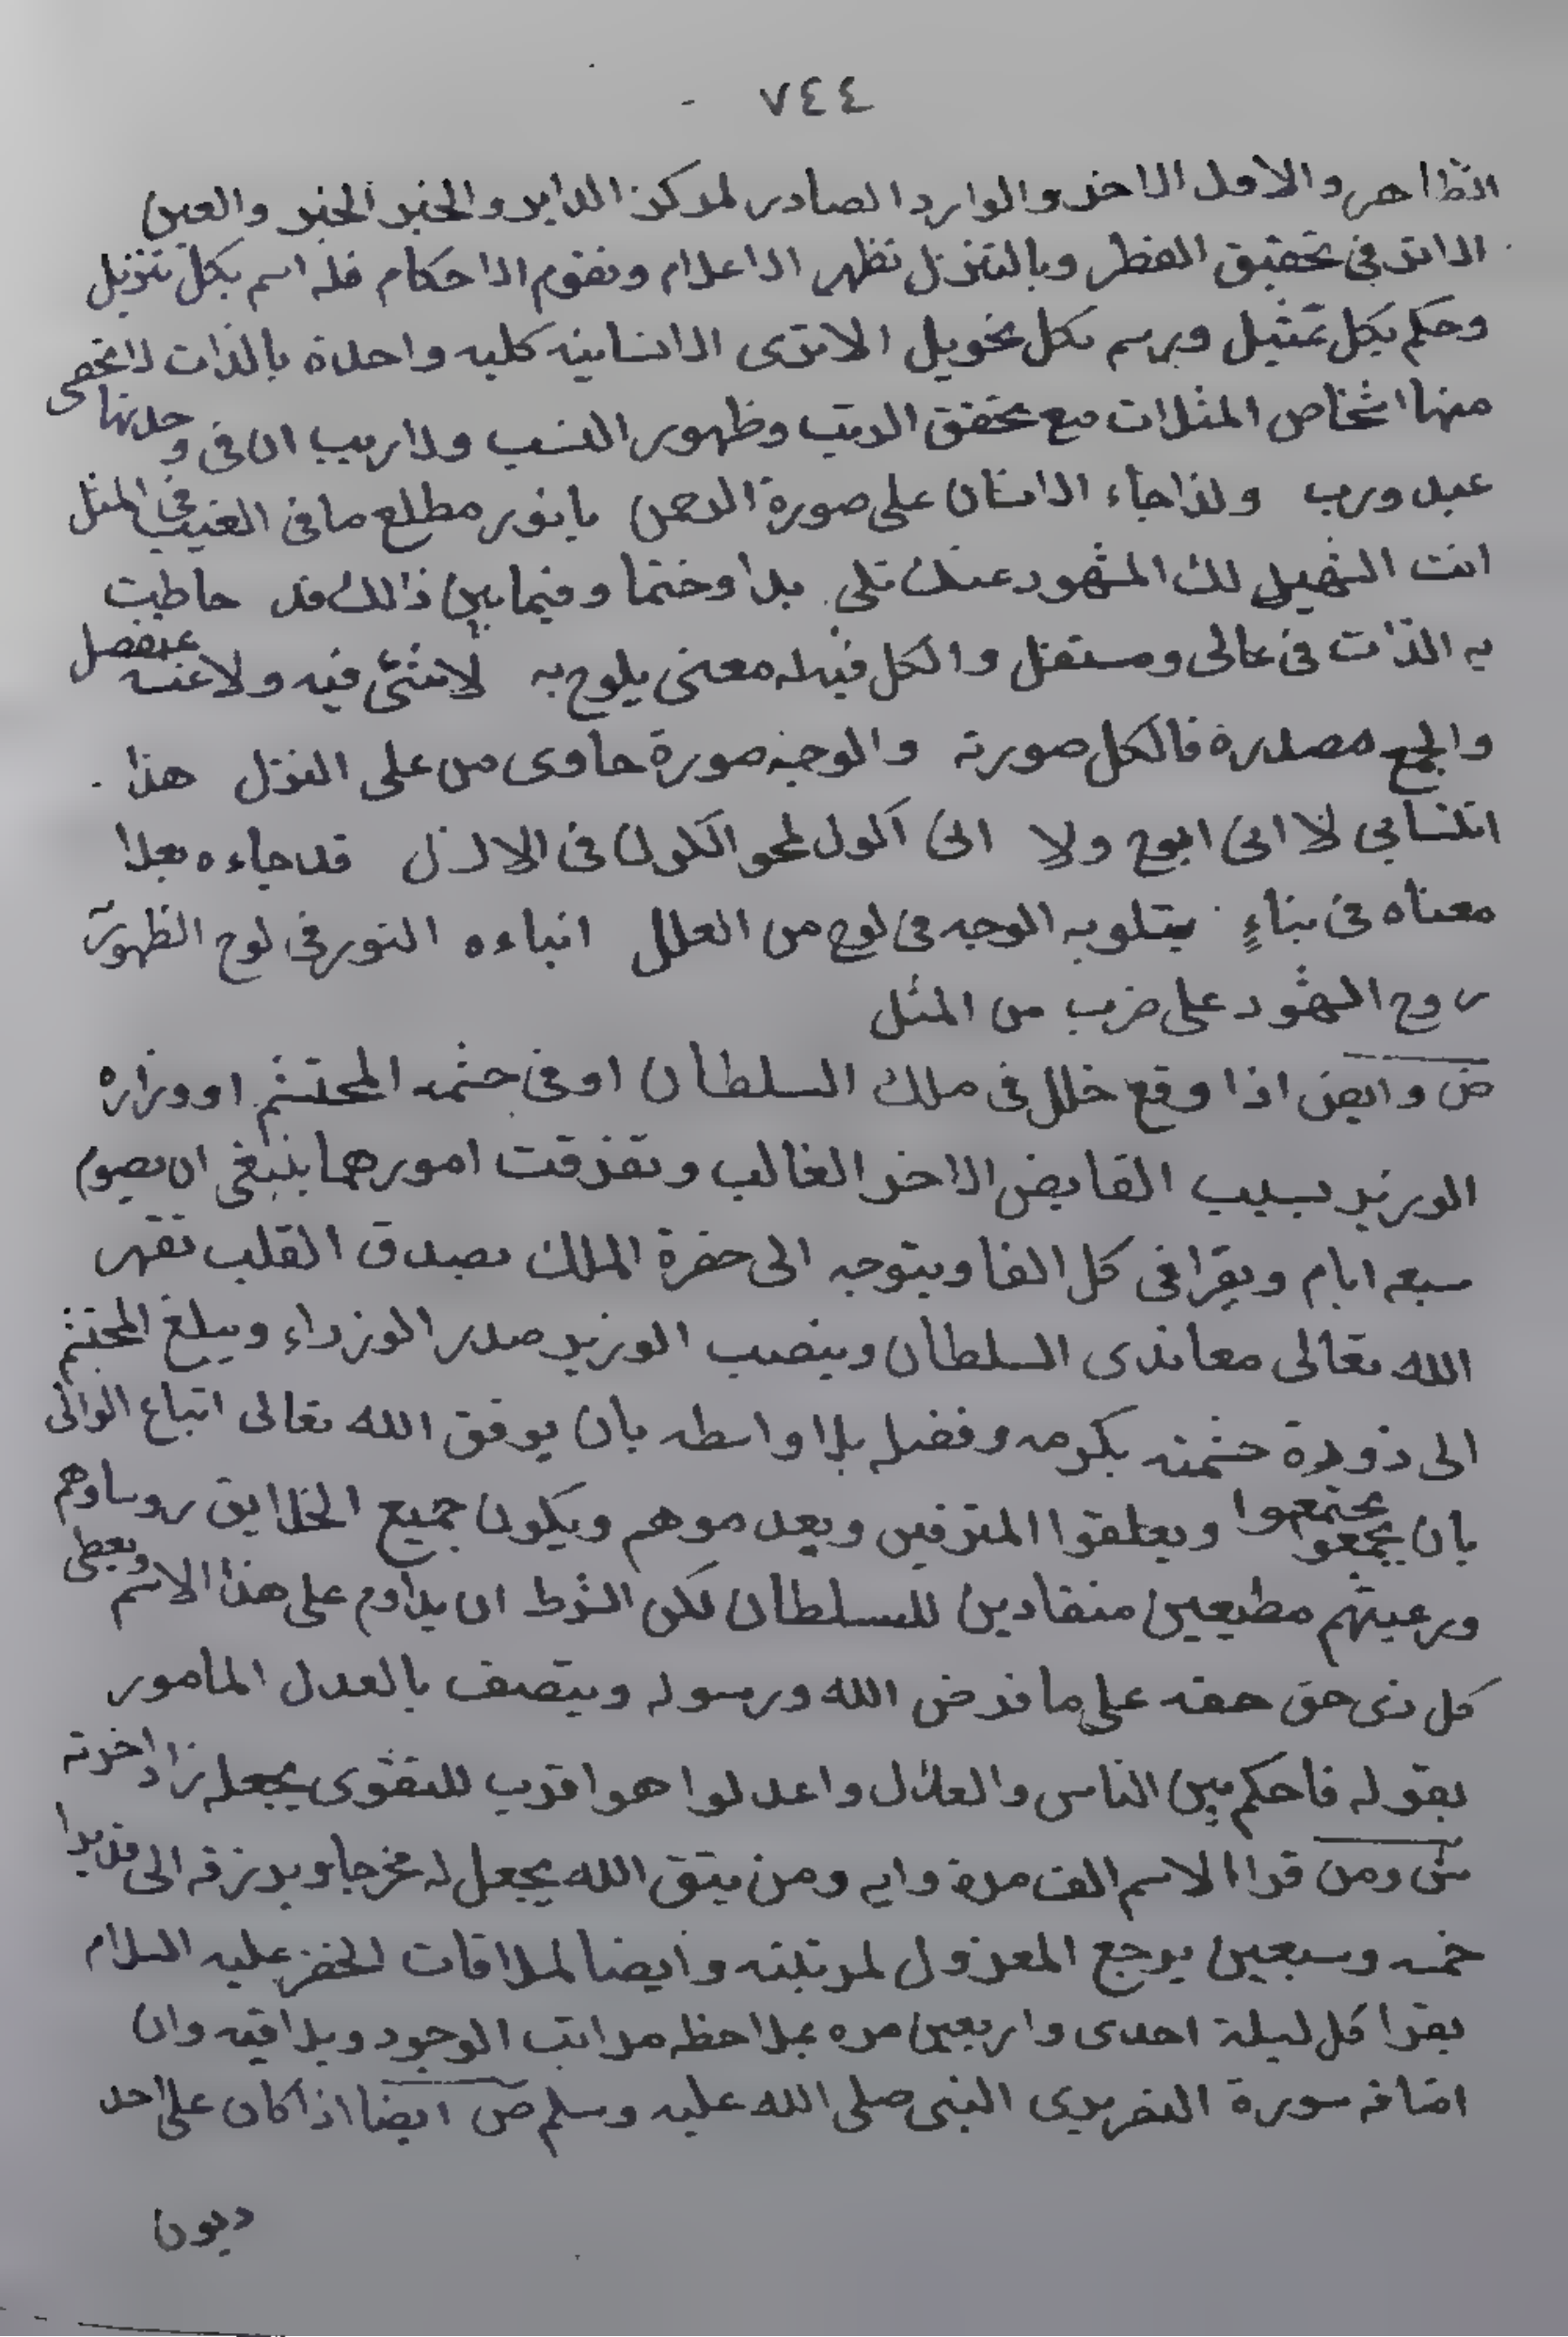 ٧٤٤
الظاهر والاول الاخر والوارد الصادر لمركز الداير والخبر الخبر والعين
الاثر في تحقيق الفطر وبالتنزل تظهر الاعلام وتقوم الاحكام فله اسم بكل تنزيل
وحكم بكل تمثيل ورسم بكل تحويل الاترى الانسانيه كليه واحدة بالذات لاتخفى
منها اشخاص المثلات مع تحقق الرتب وظهور النسب ولاريب ان في وحدتها
عبد ورب ولذا جاء الانسان على صورة الرحمن يا نور مطلع ما في الغيب في المثل
انت الشهيد لك المشهود عنك تلى بدا وختما وفيما بين ذالك قد حاطيت
به الذات في عالى ومستفل والكل فيه له معنى يلوح به لاشئ فيه ولا عنه منفصل
والجمع مصدره فالكل صورته والوجه صورة حاوى من على النزل هذا
انتسابي لا انى ابوح ولا انى اكول لمحو الكون فى الازل قد جاءه بعدا
معناه فى بناءٍ يتلو به الوجه فى لوح من العلل انباءه النور في لوح الظهور
روح الشهود على ضرب من المثل
ض وايض اذا وقع خلل فى ملك السلطان او فى حشمه المحتشم او وزاره
الوزير بسبب القابض الاخر الغالب وتفرقت امورهما ينبغى ان يصوم
سبعه ايام ويقرا فى كل الفا ويتوجه الى حضرة الملك بصدق القلب تقهر
الله تعالى معاندى السلطان وينصب الوزير صدر الوزراء ويبلغ المحتشم
الى ذورة حشمته بكرمه وفضله بلا واسطه بان يوفق الله تعالى اتباع الوالى
بان يجمعوا يجتمعوا ويعلقوا المترفين ويعدموهم ويكون جميع الخلايق روساوهم
ورعيتهم مطيعين منقادين للسلطان لكن الشرط ان يداوم على هذا الاسم ويعطى
كل ذى حق حقه على ما فرض الله ورسوله ويتصف بالعدل المامور
بقوله فاحكم بين الناس والعدل واعدلوا هو اقرب للتقوى يجعله زاد اخرته
ش ومن قرا الاسم الف مرة وايه ومن يتق الله يجعل له مخرجا ويرزقه الى قديرا
خمسه وسبعين يرجع المعزول لمرتبته وايضا لملاقات الخضر عليه السلام
يقرا كل ليلة احدى واربعين مره بملاحظه مراتب الوجود ويلاقيه وان
اضافه سورة النصر يرى النبى صلى الله عليه وسلم ض ايضا اذا كان على احد
ديون